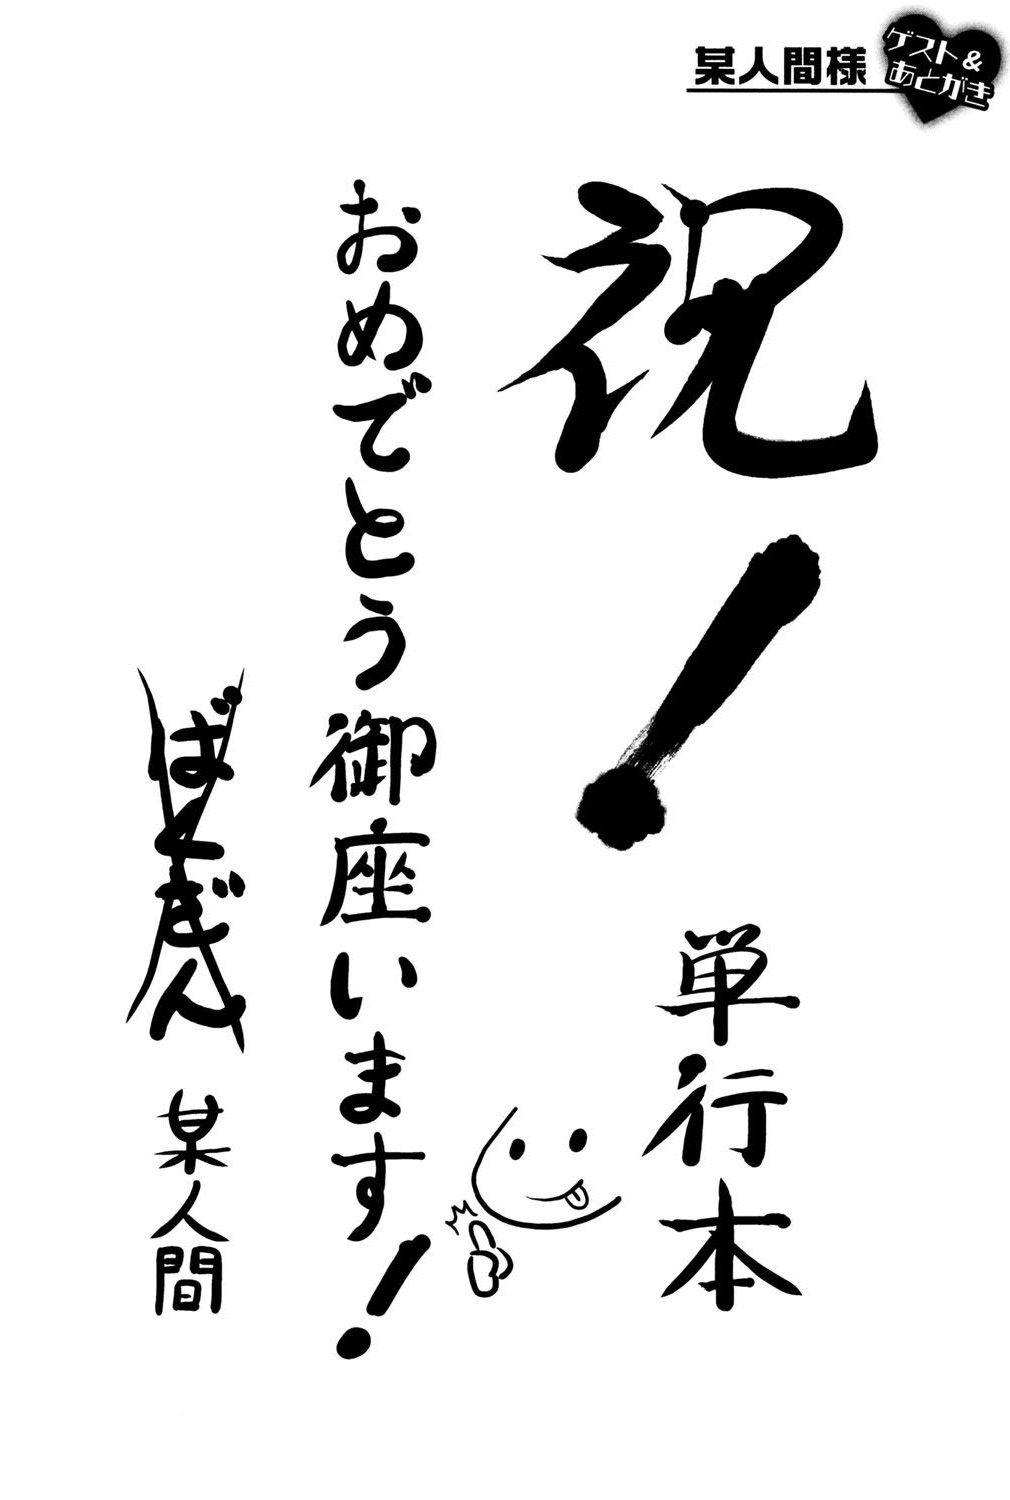 某人間様
ゲスト&
あとがき
祝!
単行本
おめでとう御座います!
ばくぎん
某人間